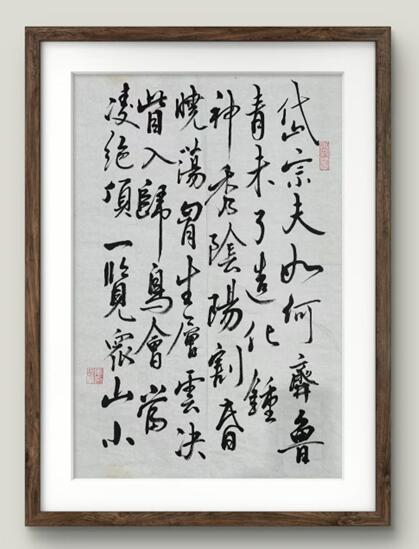 岱宗夫如何齊魯
青未了造化鍾
神秀陰陽割昏
曉蕩胷生層雲決
眥入歸鳥會當
凌絕頂一覽眾山小